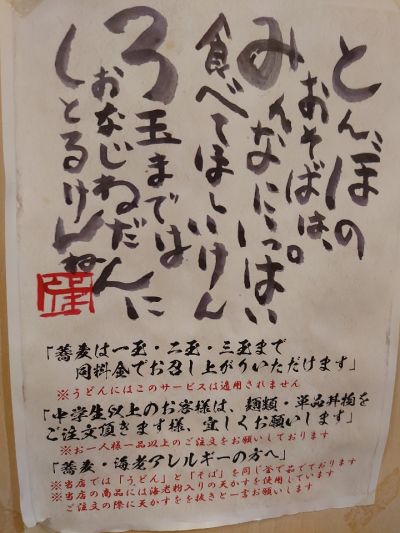 とんぼの
おそばは、
みんなにいっぱい
食べてほしいけん
3玉までは
おなじねだんに
しとるけんね。
「蕎麦は一玉・二玉・三玉まで
同料金でお召し上がりいただけます」
※うどんにはこのサービスは適用されません
「中学生以上のお客様は、麺類・単品丼物を
ご注文頂きます様、宜しくお願いします」
※お一人様一品以上のご注文をお願いしております
「蕎麦・海老アレルギーの方へ」
※当店では「うどん」と「そば」を同じ釜で茹でております
※当店の商品には海老粉入りの天かすを使用しています
ご注文の際に天かすを抜きと一言お願いします